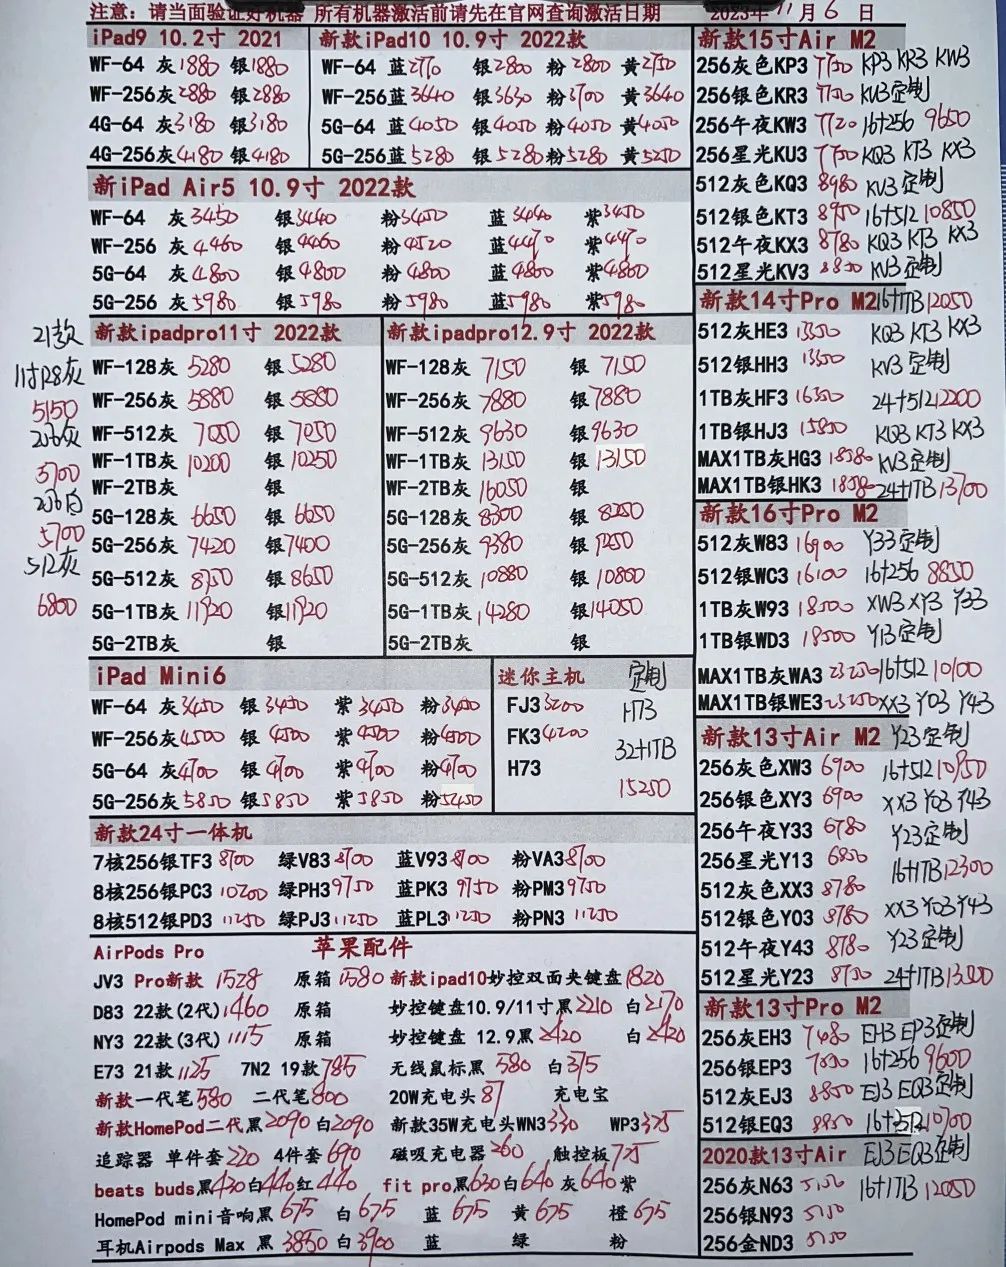 注意：请当面验证好机器 所有机器激活前请先在官网查询激活日期 2023年11月6日
iPad9 10.2寸 2021
WF-64 灰1880 银1880
WF-256灰2880 银2880
4G-64 灰3180 银3180
4G-256灰4180 银4180
新款iPad10 10.9寸 2022款
WF-64 蓝2770 银2800 粉2800 黄2750
WF-256蓝3640 银3630 粉3700 黄3640
5G-64 蓝4050 银4050 粉4050 黄4050
5G-256蓝5280 银5280 粉5280 黄5250
新iPad Air5 10.9寸 2022款
WF-64 灰3450 银3440 粉3450 蓝3440 紫3450
WF-256 灰4460 银4460 粉4520 蓝4470 紫4470
5G-64 灰4800 银4800 粉4800 蓝4800 紫4800
5G-256 灰5980 银5980 粉5980 蓝5980 紫5980
21款
11寸128灰
5150
256灰
5700
256白
5700
512灰
6800
新款ipadpro11寸 2022款
WF-128灰 5280 银5280
WF-256灰 5880 银5880
WF-512灰 7050 银7050
WF-1TB灰 10200 银10250
WF-2TB灰 银
5G-128灰 6650 银6650
5G-256灰 7420 银7400
5G-512灰 8750 银8650
5G-1TB灰 11920 银11920
5G-2TB灰 银
新款ipadpro12.9寸 2022款
WF-128灰 7150 银7150
WF-256灰 7880 银7880
WF-512灰 9630 银9630
WF-1TB灰 13150 银13150
WF-2TB灰 16050 银
5G-128灰 8300 银8250
5G-256灰 9380 银
5G-512灰 10880 银10800
5G-1TB灰 14280 银14050
5G-2TB灰 银
iPad Mini6
WF-64 灰3450 银3450 紫3450 粉3450
WF-256灰4500 银4500 紫4500 粉4500
5G-64 灰4700 银4700 紫4700 粉4700
5G-256灰5850 银5850 紫5850 粉5450
迷你主机 定制
FJ3 3200 H73
FK3 4200 32+1TB
H73 15250
新款24寸一体机
7核256银TF3 8700 绿V83 8700 蓝V93 8700 粉VA3 8700
8核256银PC3 10200 绿PH3 9750 蓝PK3 9750 粉PM3 9750
8核512银PD3 11250 绿PJ3 11250 蓝PL3 11250 粉PN3 11250
AirPods Pro 苹果配件
JV3 Pro新款 1528 原箱1580 新款ipad10妙控双面夹键盘1820
D83 22款(2代)1460 原箱 妙控键盘10.9/11寸黑2210 白2170
NY3 22款(3代)1115 原箱 妙控键盘 12.9黑2420 白2420
E73 21款1125 7N2 19款785 无线鼠标黑 580 白375
新款一代笔580 二代笔800 20W充电头87 充电宝
新款HomePod二代黑2090白2090 新款35W充电头WN3 330 WP3 375
追踪器 单件套220 4件套690 磁吸充电器260 触控板775
beats buds黑430白440红440 fit pro黑630白640灰640紫
HomePod mini音响黑675 白675 蓝 675 黄 675 橙 675
耳机Airpods Max 黑 3850 白3900 蓝 绿 粉
新款15寸Air M2
256灰色KP3 7750 KP3 KR3 KW3
256银色KR3 7750 KU3定制
256午夜KW3 7720 16+256 9650
256星光KU3 7750 KQ3 KT3 KX3
512灰色KQ3 8980 KV3定制
512银色KT3 8950 16+512 10850
512午夜KX3 8780 KQ3 KT3 KX3
512星光KV3 8850 KV3定制
新款14寸Pro M2 16+1TB 12050
512灰HE3 13350 KQ3 KT3 KX3
512银HH3 13500 KV3定制
1TB灰HF3 16350 24+512 12200
1TB银HJ3 15850 KQ3 KT3 KX3
MAX1TB灰HG3 18580 KV3定制
MAX1TB银HK3 18580 24+1TB 13700
新款16寸Pro M2
512灰W83 16900 Y33定制
512银WC3 16100 16+256 8850
1TB灰W93 18500 XW3 XY3 Y33
1TB银WD3 18500 Y13定制
MAX1TB灰WA3 23250 16+512 10100
MAX1TB银WE3 23250 XX3 Y03 Y43
新款13寸Air M2 Y23定制
256灰色XW3 6900 16+512 10950
256银色XY3 6900 XX3 Y03 Y43
256午夜Y33 6780 Y23定制
256星光Y13 6850 16+1TB 12300
512灰色XX3 8780 XX3 Y03 Y43
512银色Y03 8780 Y23定制
512午夜Y43 8780
512星光Y23 8750 24+1TB 13000
新款13寸Pro M2
256灰EH3 7480 EH3 EP3定制
256银EP3 7850 16+256 9600
512灰EJ3 8850 EJ3 EQ3定制
512银EQ3 8850 16+512 10700
2020款13寸Air EJ3 EQ3定制
256灰N63 5150 16+1TB 12050
256银N93 5150
256金ND3 5150